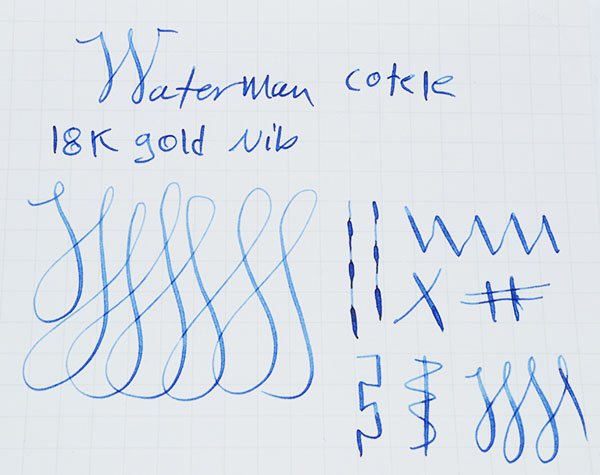 Waterman cotele
18K gold Nib